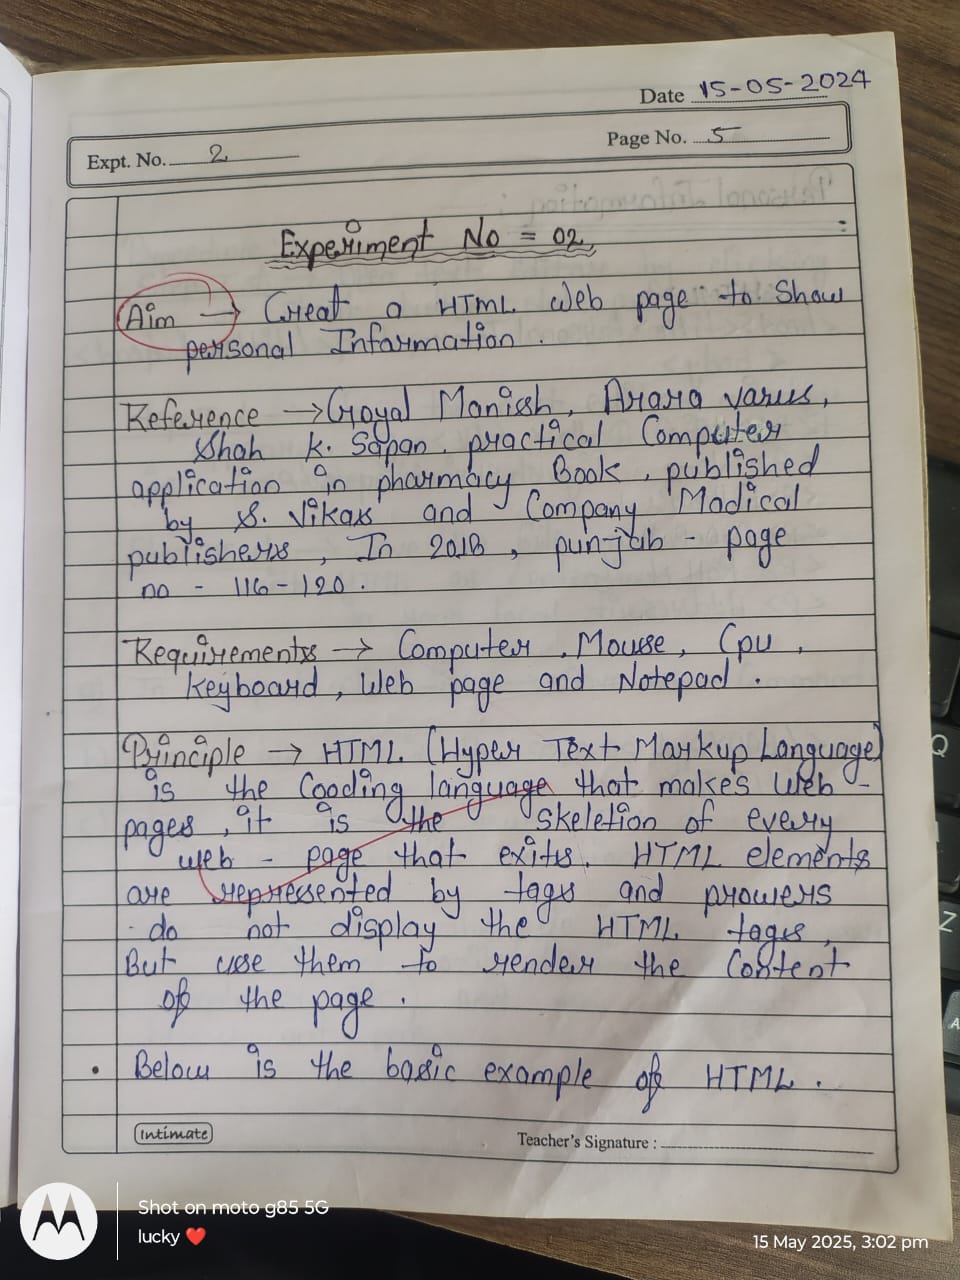 Date 15-05-2024
Expt. No. 2
Page No. 5
Experiment No = 02
Aim → Creat a HTML Web page to Show
personal Information .
Reference → Goyal Manish, Arara varus,
Shah K. Sapan. practical Computer
application in pharmacy Book, published
by S. Vikas and Company Madical
publishers, In 2018, punjab - page
no - 116-120.
Requirements → Computer, Mouse, Cpu,
Keyboard, Web page and Notepad.
Principle → HTML (Hyper Text Markup Language)
is the Cooding language that makes Web -
pages, it is the skeletion of every
web - page that exits. HTML elements
are represented by tags and prowers
do not display the HTML tages,
But use them to render the Content
of the page.
• Below is the basic example of HTML.
Intimate
Teacher's Signature :
Shot on moto g85 5G
lucky ❤️
15 May 2025, 3:02 pm